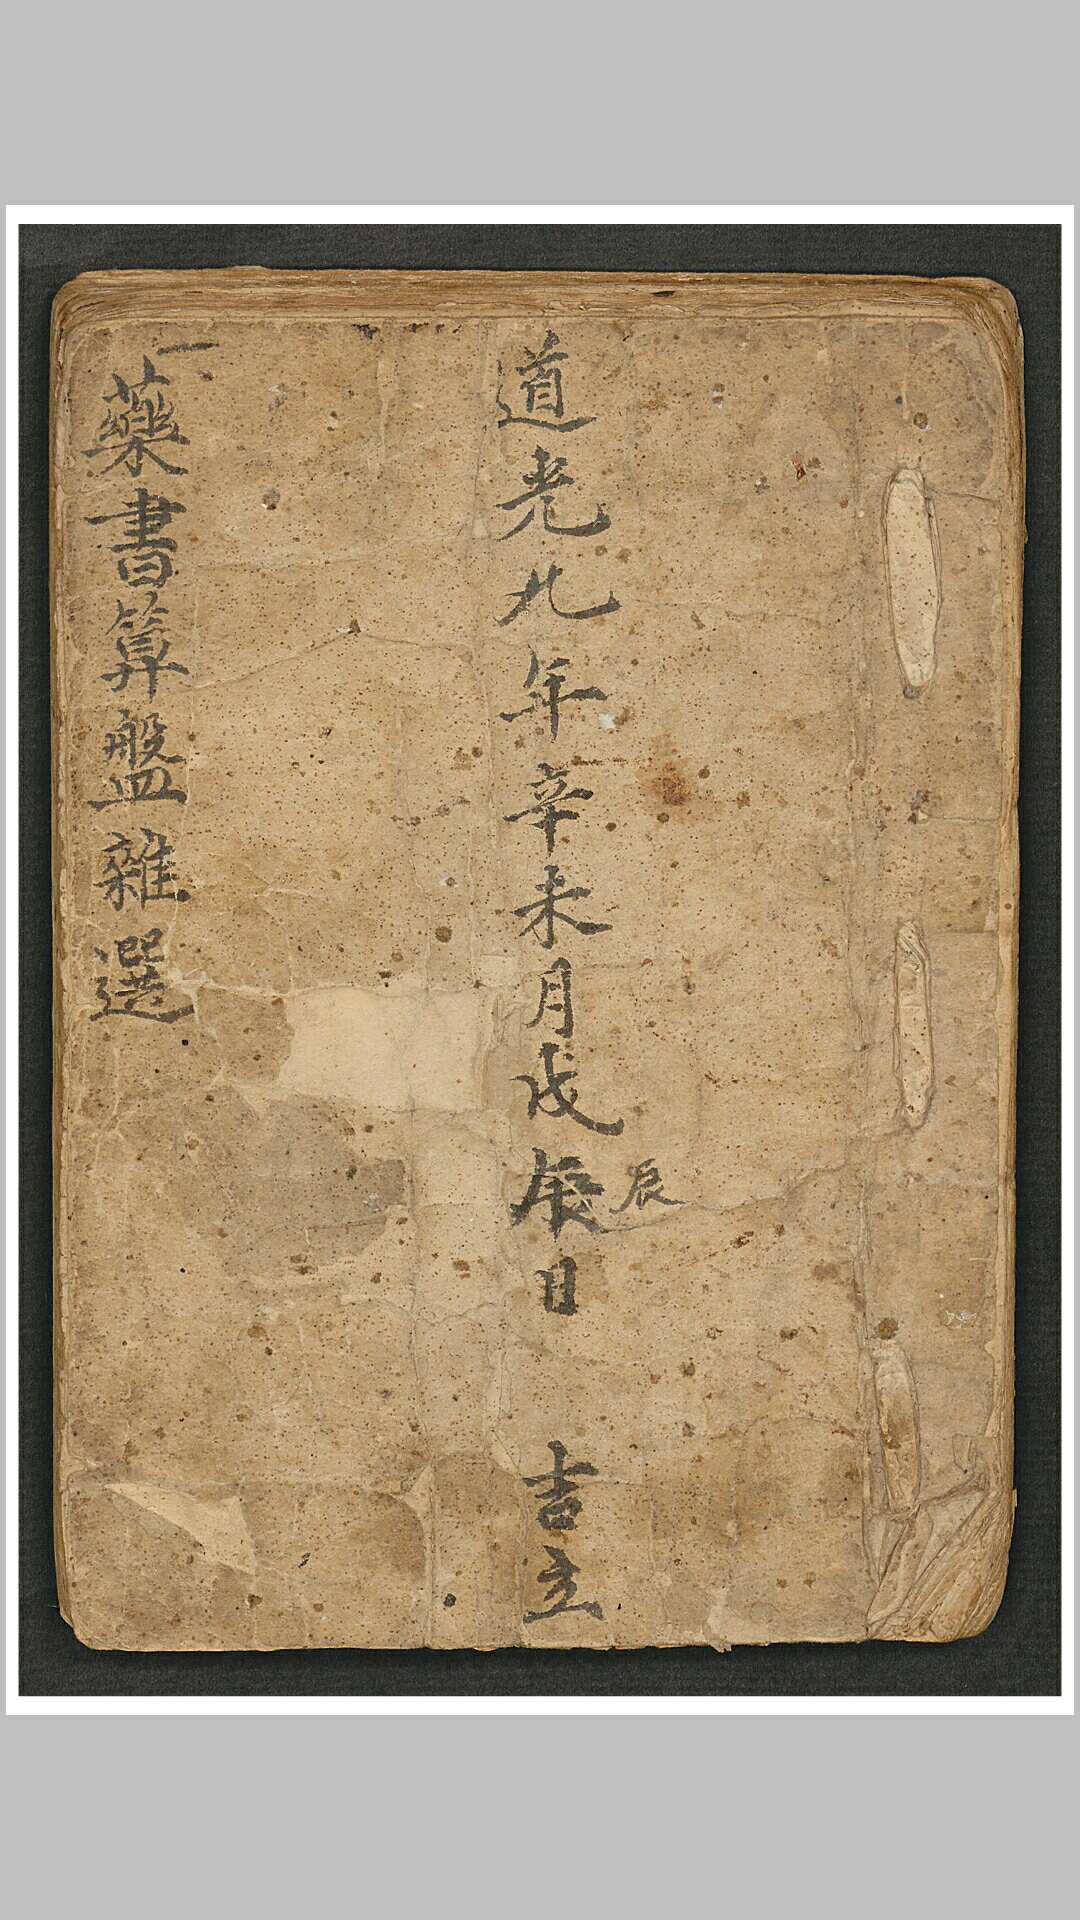 道光九年辛未月戊辰日 吉立
辰
一藥書算盤雜選